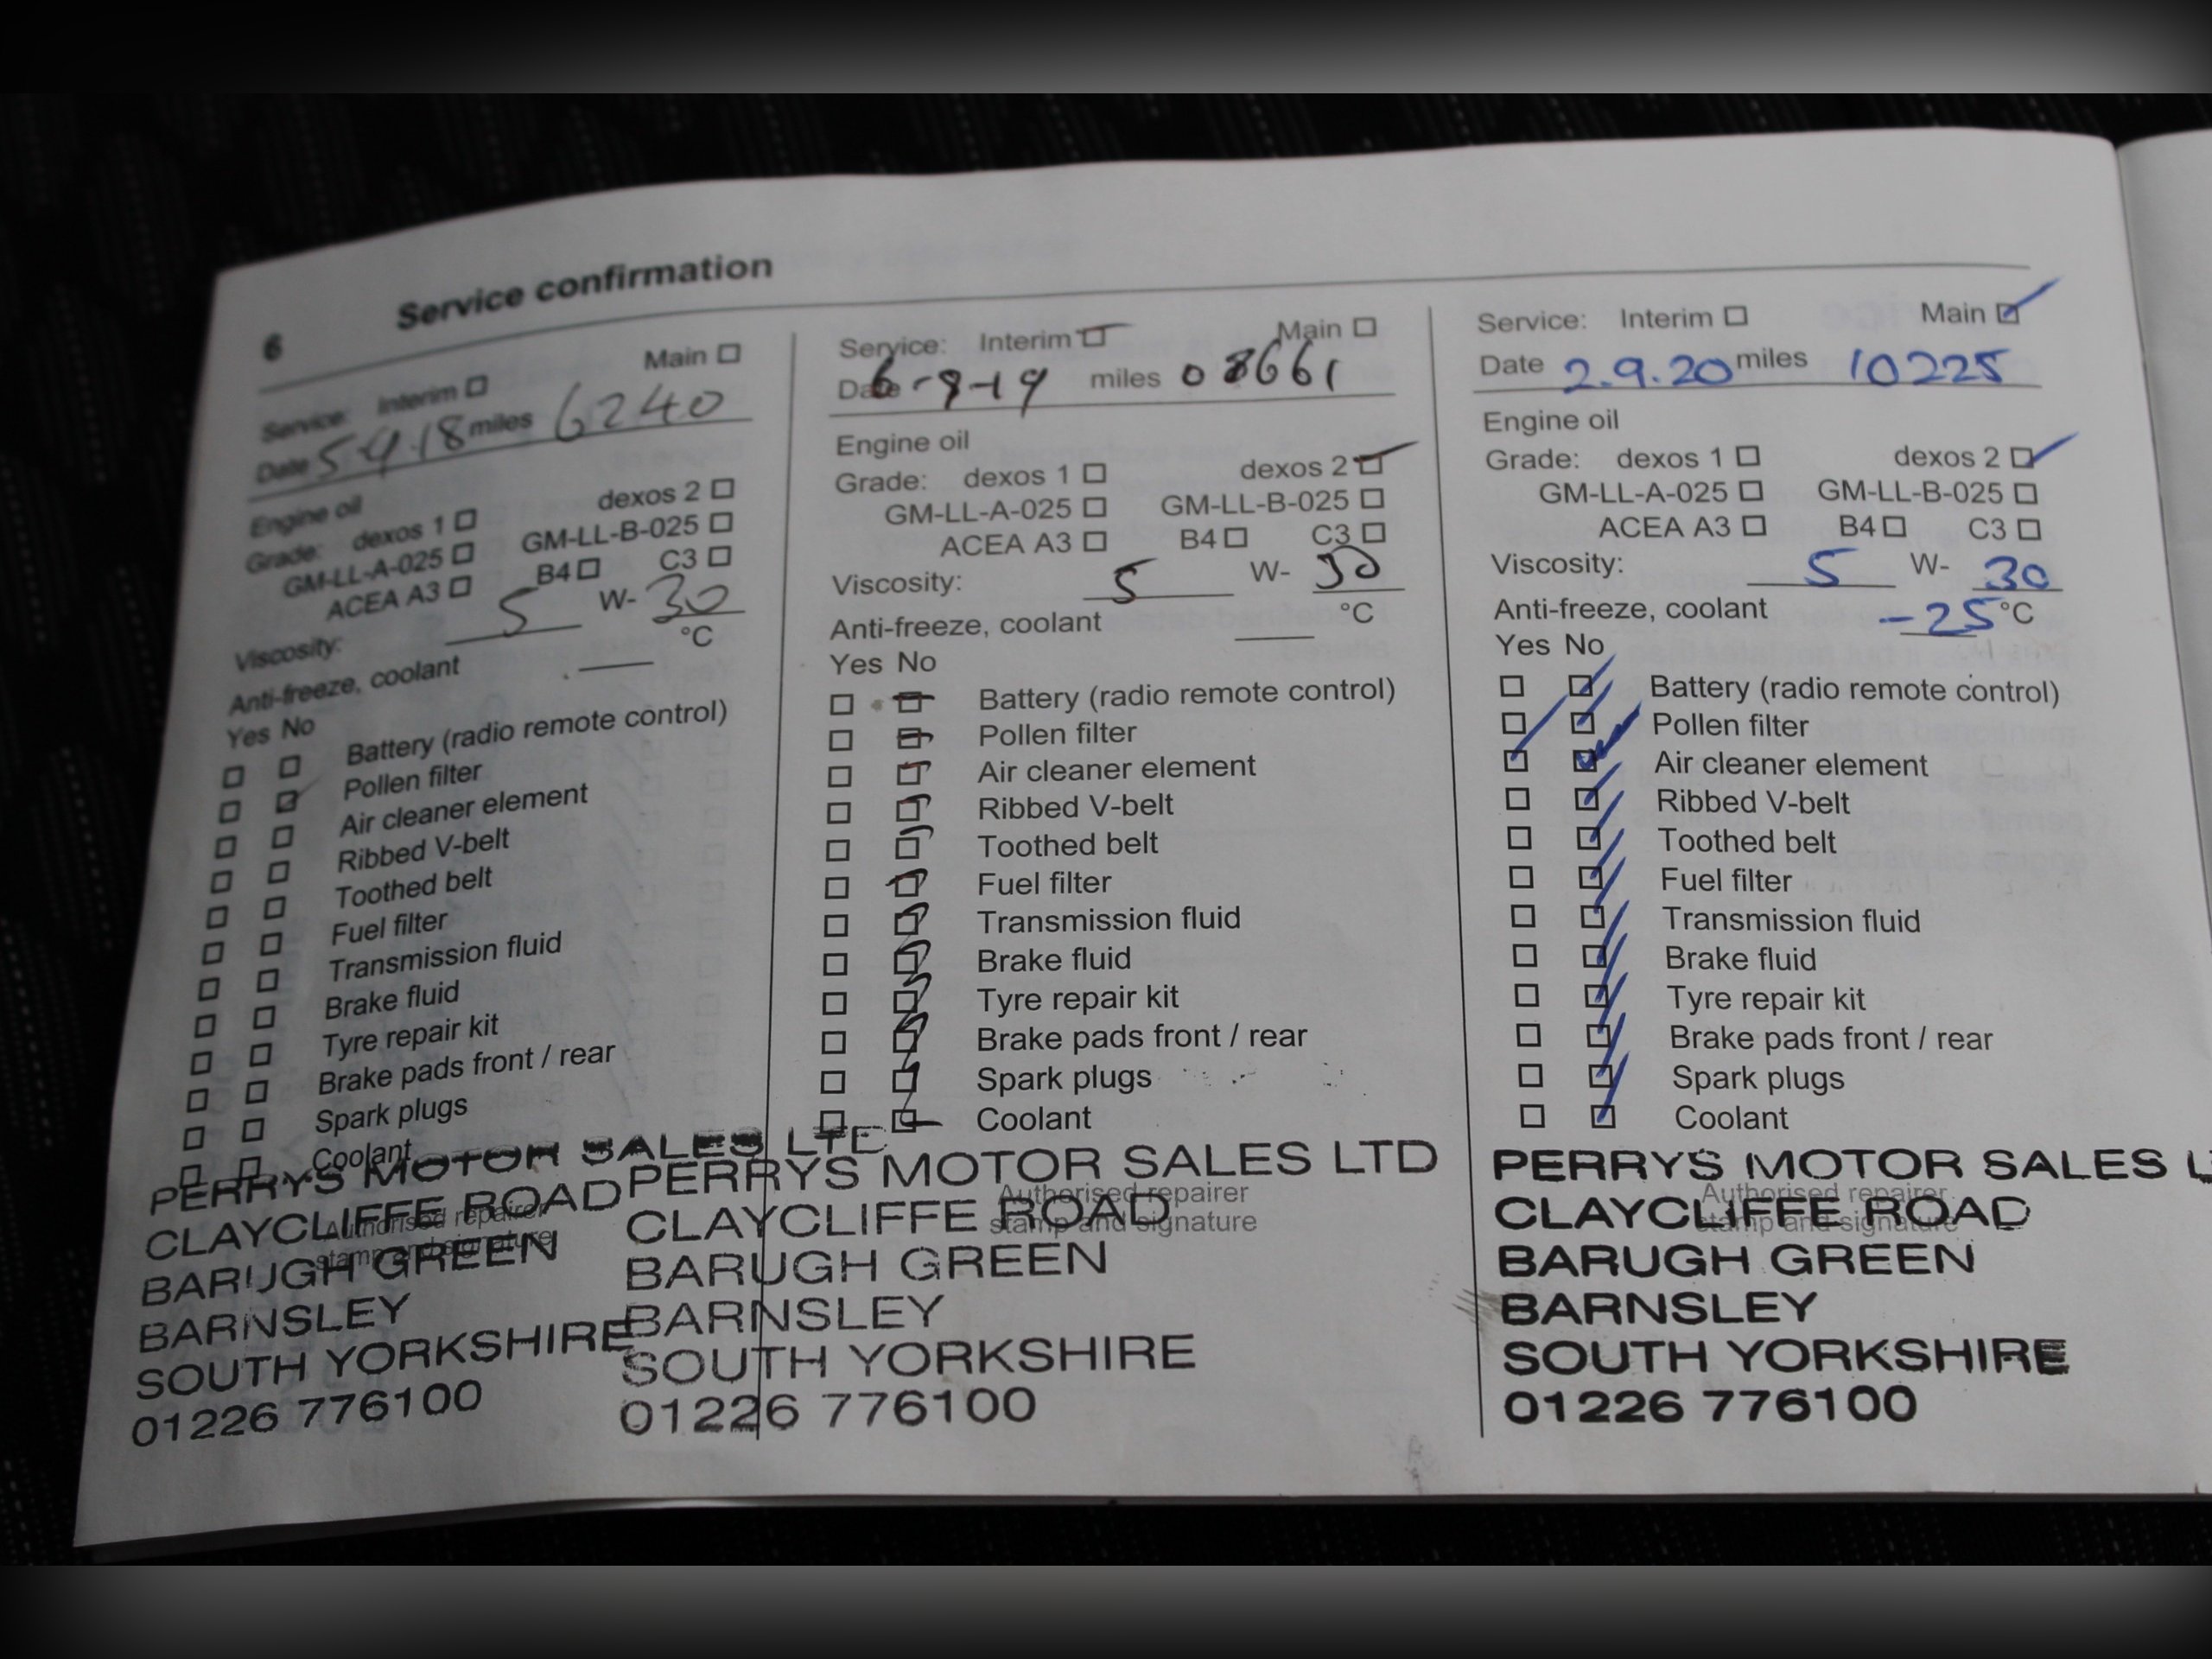 6 Service confirmation
Service: Interim ☐ Main ☐
Date 5-9-18 miles 6240
Engine oil
Grade: dexos 1 ☐ dexos 2 ☐
GM-LL-A-025 ☐ GM-LL-B-025 ☐
ACEA A3 ☐ B4 ☐ C3 ☐
Viscosity: 5 W- 30
Anti-freeze, coolant °C
Yes No
Battery (radio remote control)
Pollen filter
Air cleaner element
Ribbed V-belt
Toothed belt
Fuel filter
Transmission fluid
Brake fluid
Tyre repair kit
Brake pads front / rear
Spark plugs
Coolant
Authorised repairer
stamp and signature
PERRYS MOTOR SALES LTD
CLAYCLIFFE ROAD
BARUGH GREEN
BARNSLEY
SOUTH YORKSHIRE
01226 776100
Service: Interim ☑ Main ☐
Date 6-9-19 miles 08661
Engine oil
Grade: dexos 1 ☐ dexos 2 ☑
GM-LL-A-025 ☐ GM-LL-B-025 ☐
ACEA A3 ☐ B4 ☐ C3 ☐
Viscosity: 5 W- 30
Anti-freeze, coolant °C
Yes No
Battery (radio remote control)
Pollen filter
Air cleaner element
Ribbed V-belt
Toothed belt
Fuel filter
Transmission fluid
Brake fluid
Tyre repair kit
Brake pads front / rear
Spark plugs
Coolant
Authorised repairer
stamp and signature
PERRYS MOTOR SALES LTD
CLAYCLIFFE ROAD
BARUGH GREEN
BARNSLEY
SOUTH YORKSHIRE
01226 776100
Service: Interim ☐ Main ☑
Date 2.9.20 miles 10225
Engine oil
Grade: dexos 1 ☐ dexos 2 ☑
GM-LL-A-025 ☐ GM-LL-B-025 ☐
ACEA A3 ☐ B4 ☐ C3 ☐
Viscosity: 5 W- 30
Anti-freeze, coolant -25 °C
Yes No
Battery (radio remote control)
Pollen filter
Air cleaner element
Ribbed V-belt
Toothed belt
Fuel filter
Transmission fluid
Brake fluid
Tyre repair kit
Brake pads front / rear
Spark plugs
Coolant
Authorised repairer
stamp and signature
PERRYS MOTOR SALES L
CLAYCLIFFE ROAD
BARUGH GREEN
BARNSLEY
SOUTH YORKSHIRE
01226 776100